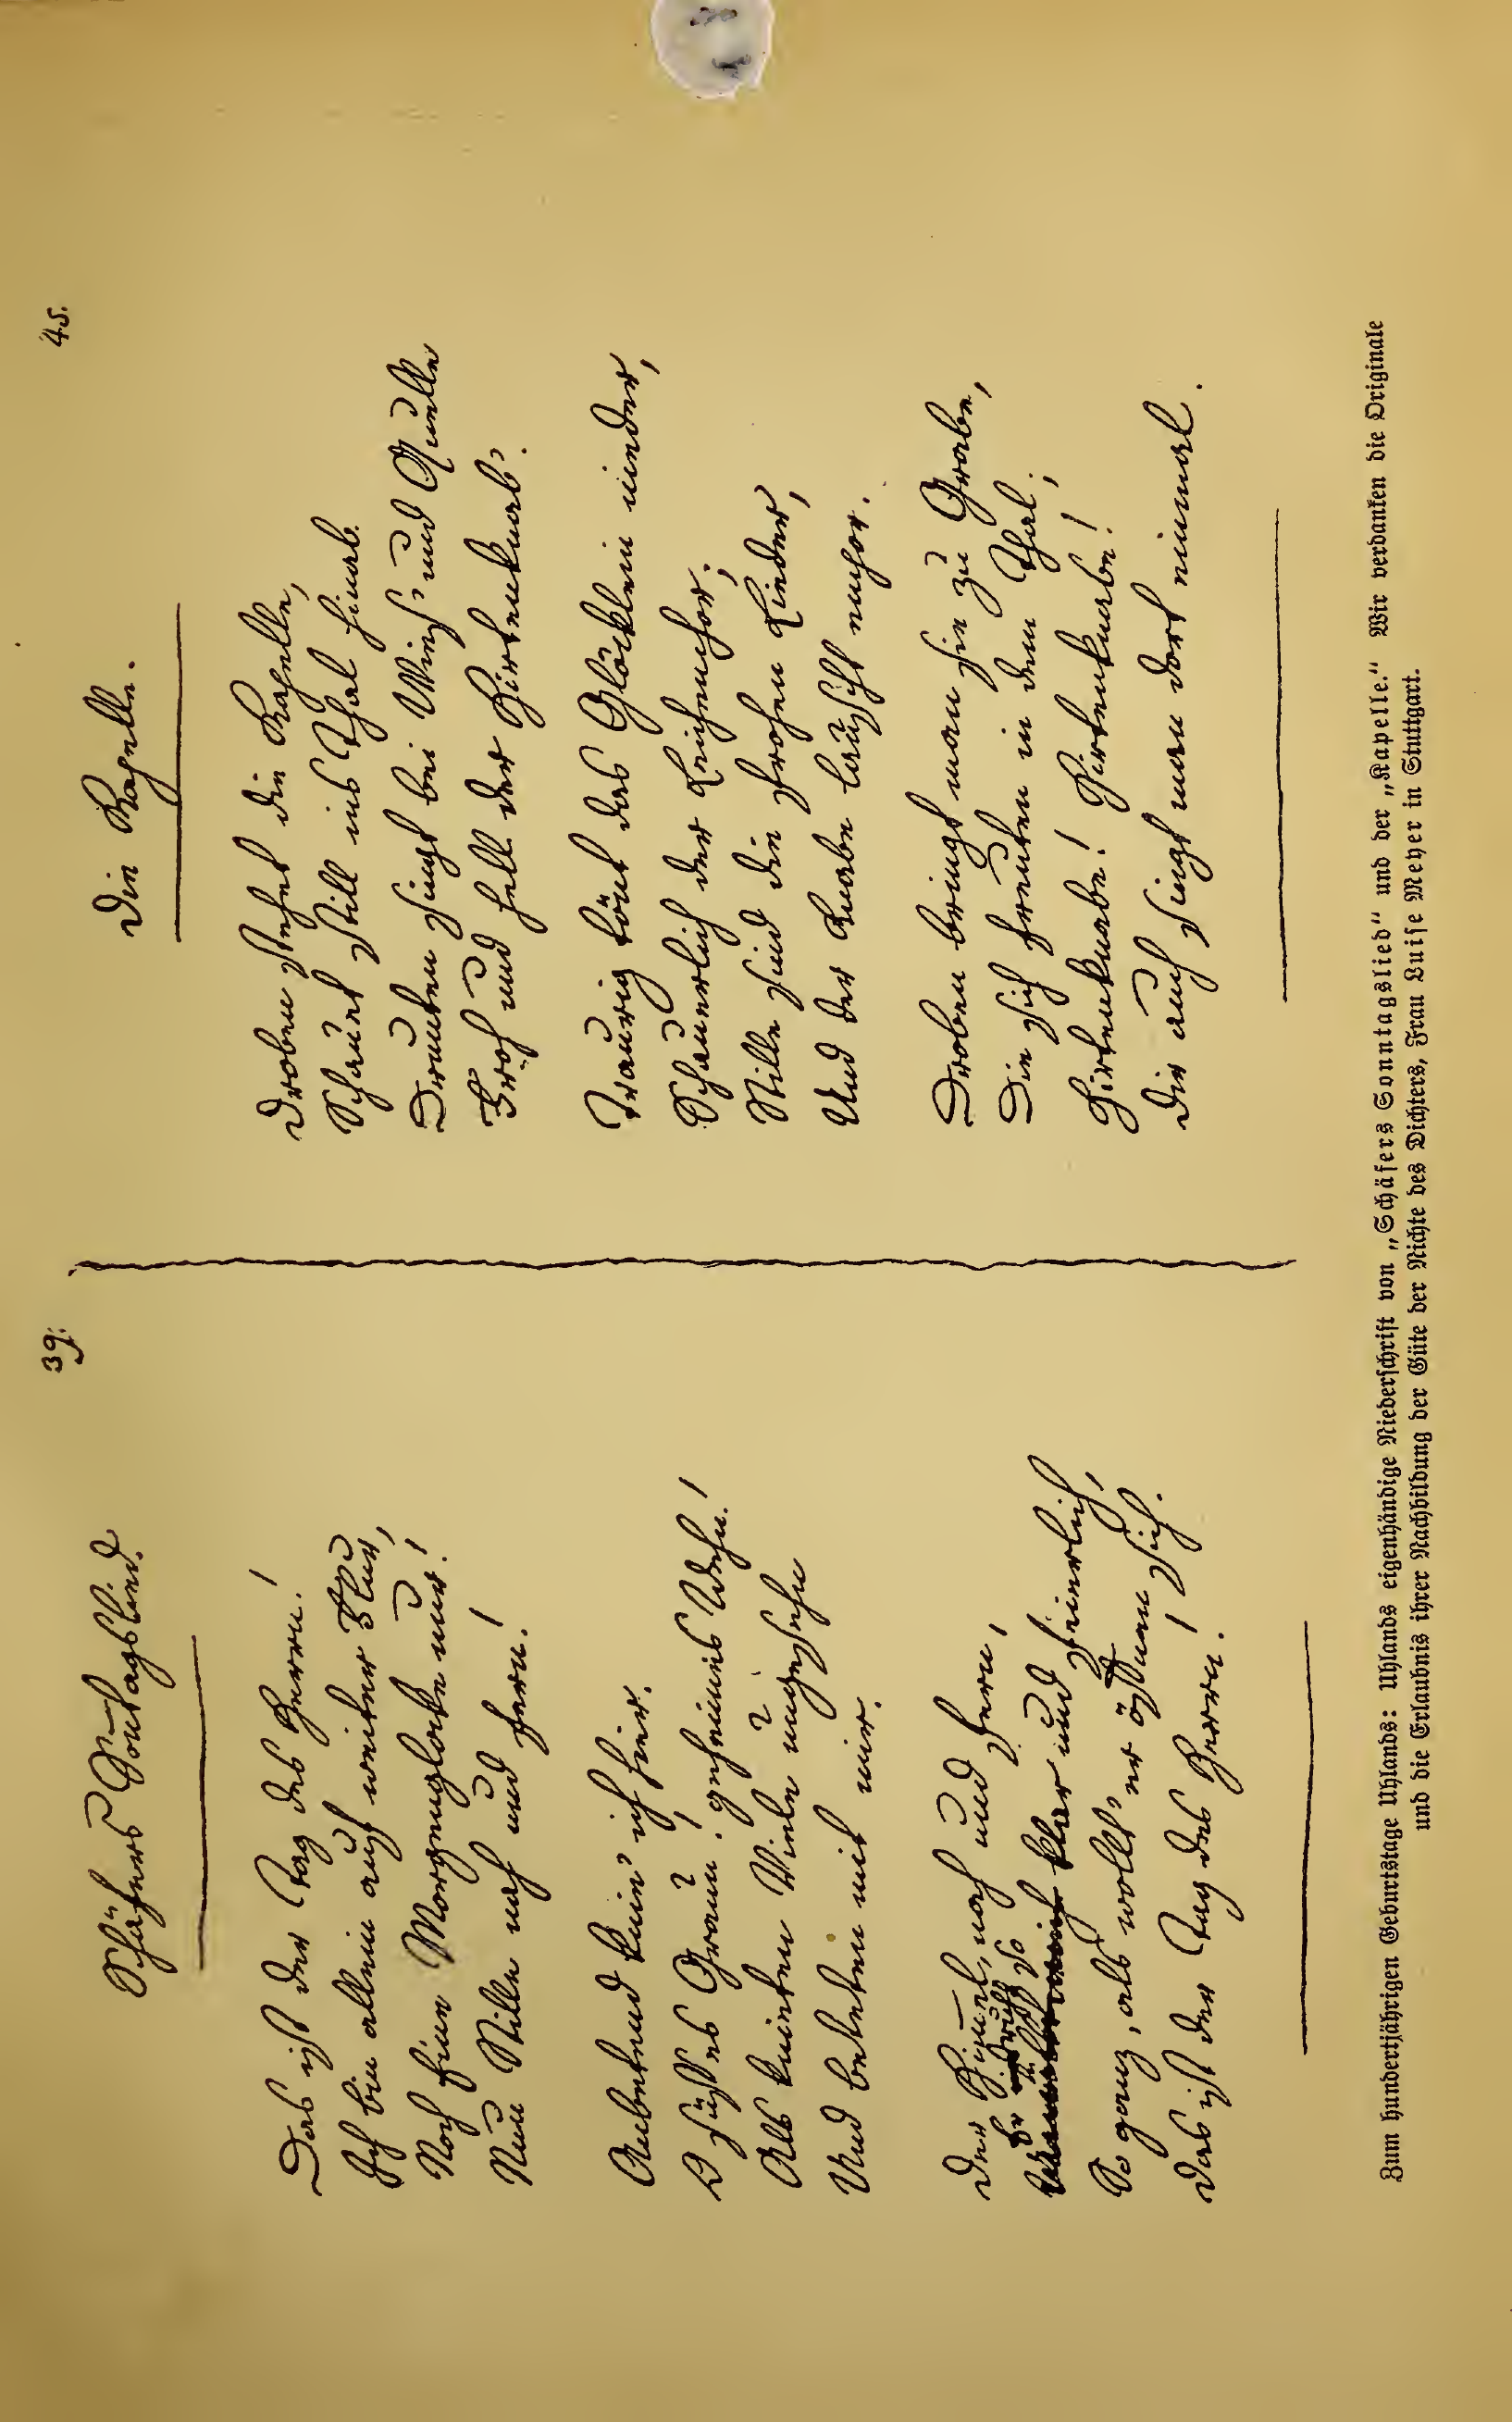 39.
Schäfers Son̄tagslied.
Das ist der Tag des Herrn!
Ich bin allein auf weiter Flur,
Noch eine Morgenglocke nur!
Nun Stille nah und fern!
Anbetend knie' ich hier.
O süßes Graun! geheimes Wehn!
Als knieten Viele ungesehn
Und beteten mit mir.
Der Him̄el, nah und fern,
Er so klar und feierlich,
So ganz, als wollt' er öffnen sich.
Das ist der Tag des Herrn!
45.
Die Kapelle.
Droben stehet die Kapelle,
Schauet still ins Thal hinab.
Drunten singt bei Wies' und Quelle
Froh und hell der Hirtenknab'.
Traurig tönt das Glöcklein nieder,
Schauerlich der Leichenchor;
Stille sind die frohen Lieder,
Und der Knabe lauscht empor.
Droben bringt man sie zu Grabe,
Die sich freuten in dem Thal;
Hirtenknabe! Hirtenknabe!
Dir auch singt man dort einmal.
Zum hundertjährigen Geburtstage Uhlands: Uhlands eigenhändige Niederschrift von „Schäfers Sonntagslied“ und der „Kapelle.“ Wir verdanken die Originale
und die Erlaubnis ihrer Nachbildung der Güte der Nichte des Dichters, Frau Luise Meyer in Stuttgart.